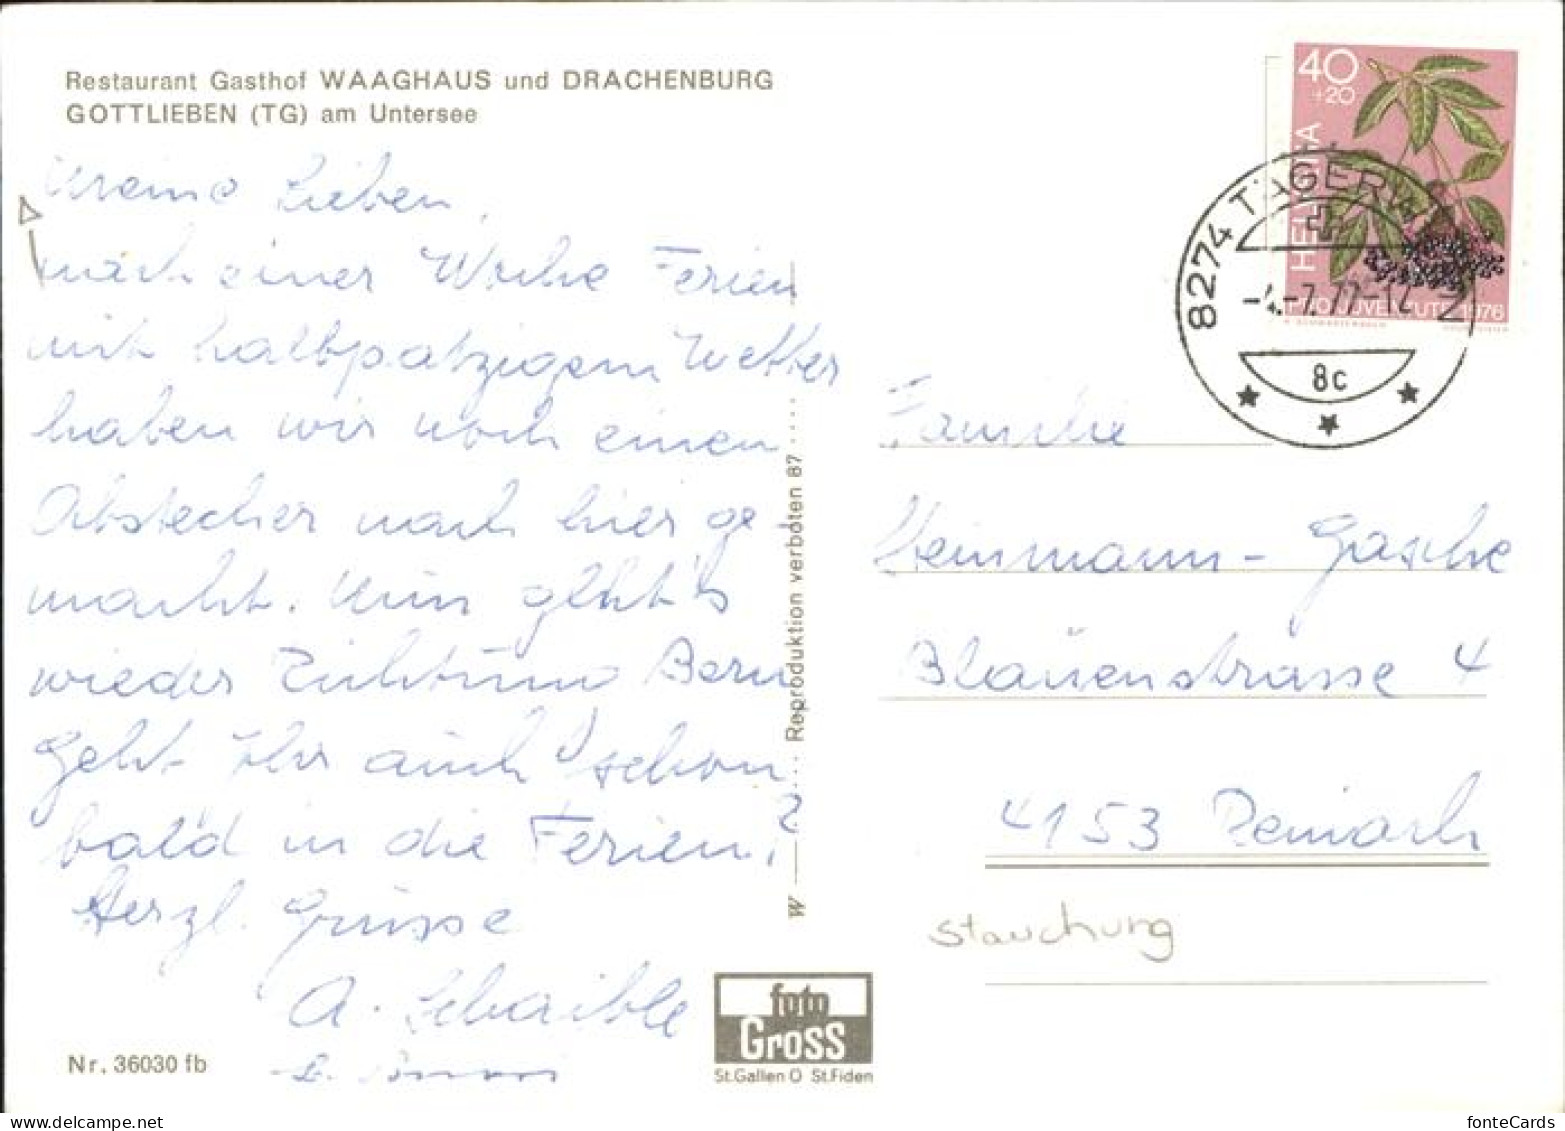 Restaurant Gasthof WAAGHAUS und DRACHENBURG
GOTTLIEBEN (TG) am Untersee
Meine Lieben,
nach einer Woche Ferien
mit halbpatzigem Wetter
haben wir noch einen
Abstecher nach hier ge
macht. Nun geht's
wieder Richtung Bern
Geht Ihr auch schon
bald in die Ferien?
Herzl. Grüsse
A. Schaible
Nr. 36030 fb
W — Reproduktion verboten 87
foto
Gross
St.Gallen O St.Fiden
40
+20
HELVETIA
PRO JUVENTUTE 1976
8274 TÄGERWILEN
-4.-7.77-12
8c
Familie
Heinimann - Gasche
Blauenstrasse 4
4153 Reinach
Stauchung
fonteCards